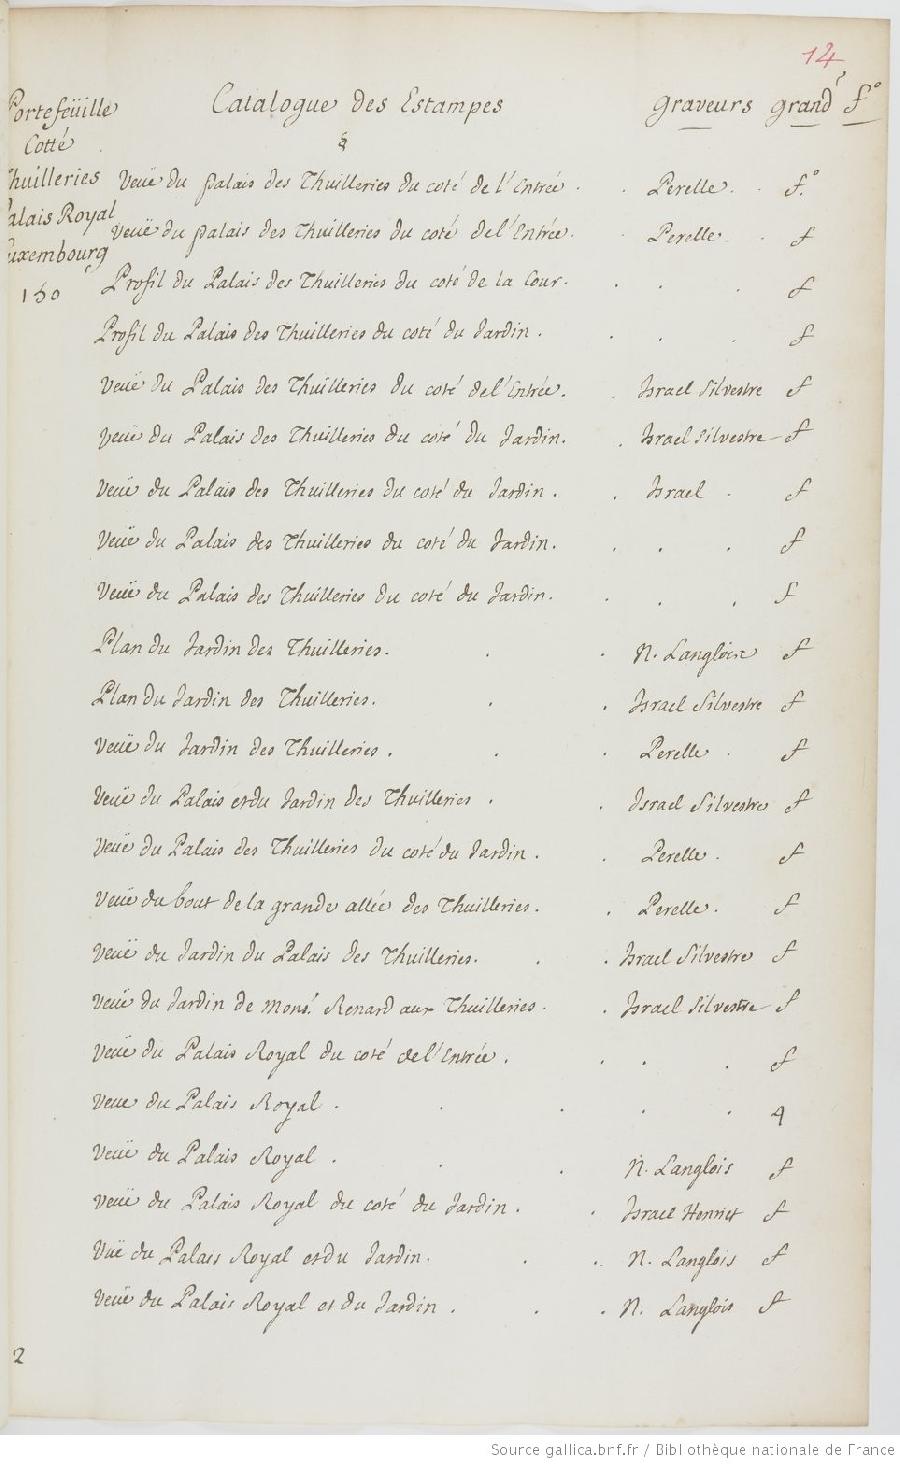 14
Portefeüille Catalogue des Estampes graveurs grandr fo
Cotté
Thuilleries Veüe du palais des Thuilleries du coté de l'Entrée . . Perelle . . fo.
Palais Royal Veüe du palais des Thuilleries du coté de l'Entrée . . Perelle . . f
Luxembourg
150 Profil du Palais des Thuilleries du coté de la Cour . . . . f
Profil du Palais des Thuilleries du coté du Jardin . . . . f
Veüe du Palais des Thuilleries du coté de l'Entrée . . Israel Silvestre f
Veüe du Palais des Thuilleries du coté du Jardin . . Israel Silvestre f
Veüe du Palais des Thuilleries du coté du Jardin . . Israel . f
Veüe du Palais des Thuilleries du coté du Jardin . . . . f
Veüe du Palais des Thuilleries du coté du Jardin . . . . f
Plan du Jardin des Thuilleries . . . N. Langlois f
Plan du Jardin des Thuilleries . . . Israel Silvestre f
Veüe du Jardin des Thuilleries . . . Perelle . f
Veüe du Palais et du Jardin des Thuilleries . . Israel Silvestre f
Veüe du Palais des Thuilleries du coté du Jardin . . Perelle . f
Veüe du bout de la grande allée des Thuilleries . . Perelle . f
Veüe du Jardin du Palais des Thuilleries . . . Israel Silvestre f
Veüe du Jardin de Monsr. Renard aux Thuilleries . . Israel Silvestre f
Veüe du Palais Royal du coté de l'Entrée . . . . f
Veue du Palais Royal . . . . . 4
Veüe du Palais Royal . . . N. Langlois f
Veüe du Palais Royal du coté du Jardin . . Israel Henriet f
Vüe du Palais Royal et du Jardin . . . N. Langlois f
Veüe du Palais Royal et du Jardin . . . N. Langlois f
2
Source gallica.bnf.fr / Bibliothèque nationale de France